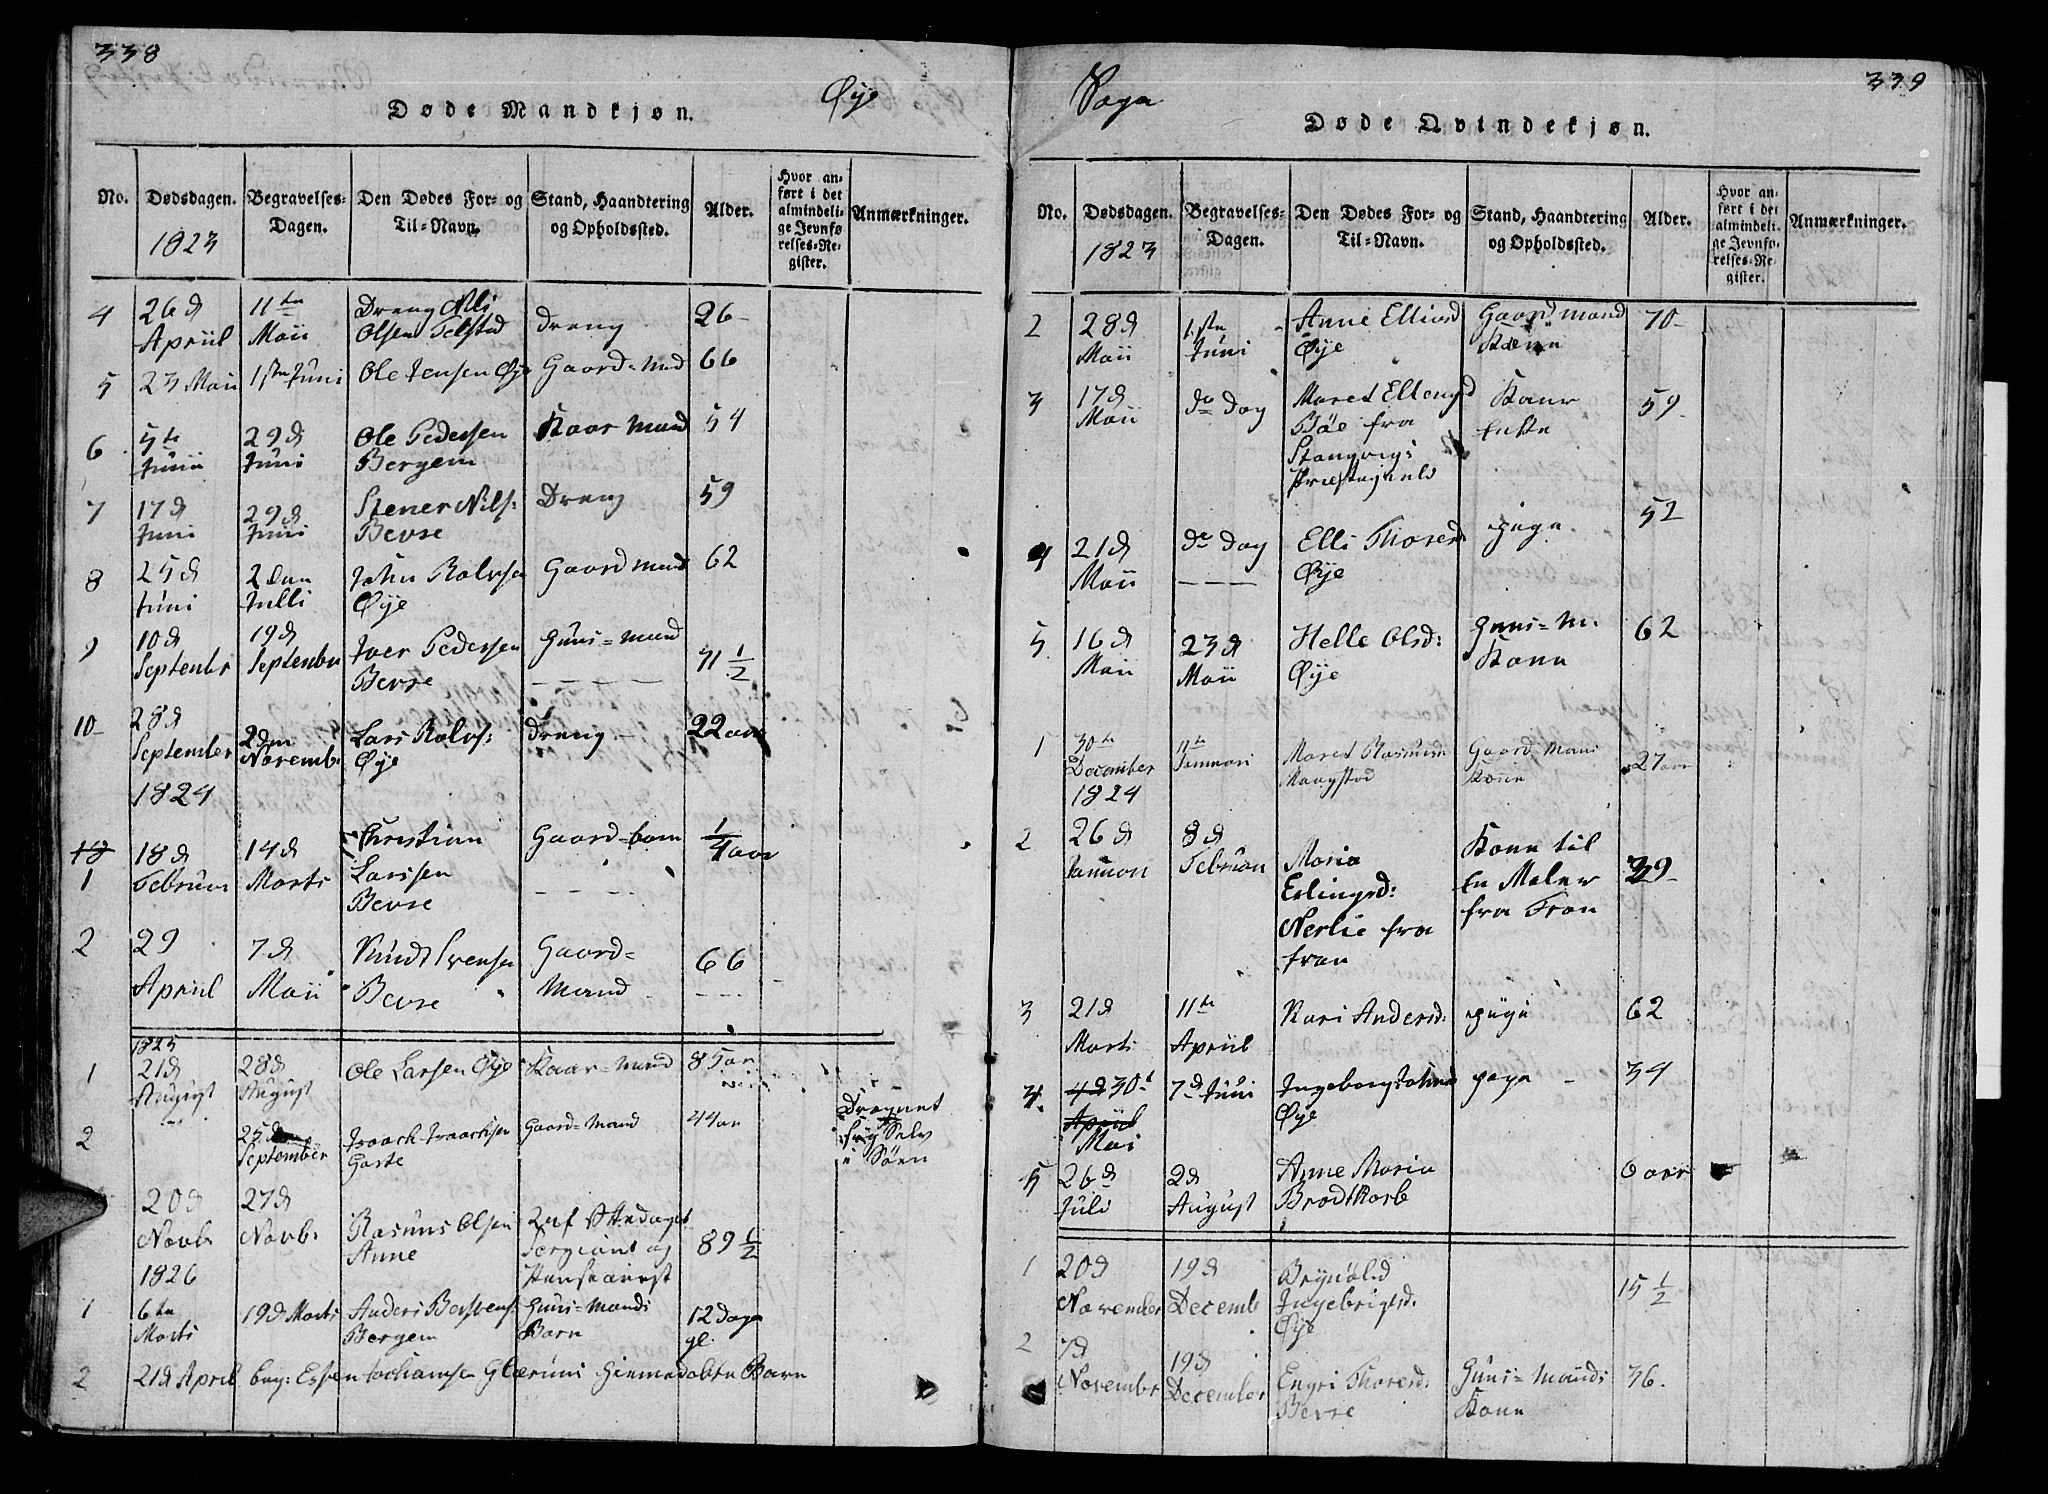 338
Døde Mandkjøn.
Øye
No.
Dødsdagen.
1823
Begravelses-
Dagen.
Den Dødes For- og
Til-Navn.
Stand, Haandtering
og Opholdssted.
Alder.
Hvor an-
ført i det
almindeli-
ge Jevnfø-
relses-Re-
gister.
Anmærkninger.
4
26 d
April
11te
Maii
Dreng Nils
Olsen Telstad
dreng
26
5
23 Maii
1ste Juni
Ole Jensen Øye
Gaard-Md
66
6
5te
Junii
29 d
Juni
Ole Pedersen
Bergem
Kaar Mand
54
7
17 d
Juni
29 d
Juni
Stener Nils:
Bevre
Dreng
59
8
25 d
Juni
2den
Julli
John Rolvsen
Øye
Gaardmand
62
9
10 d
September
19 d
September
Iver Pedersen
Bevre
Huus-Mand
71 1/2
10
28 d
September
2den
Novemb
Lars Rolvs:
Øye
dreng
22 aar
1824
10
1
18 d
Februar
14 d
Marts
Christian
Larssen
Bevre
Gaard-barn
1/4 aar
2
29
April
7 d
Maii
Knud Svensen
Bevre
Gaard-
Mand
66
1825
1
21 d
August
28 d
August
Ole Larsen Øye
Kaar-Mand
85 aar
2
25 d
September
Isaach Isaachsen
Gaard-Mand
44 aar
Dragnet
sig Selv
i Søen
20 d
Novb
27 d
Novb:
Rasmus Olsen
Anne
Sergiant og
89 1/2
1826
1
6te
Marts
19 d Marts
Anders
Bergem
Huus-Mands
Barn
12 Dage
gl.
2
21 d April
beg: Espen Jochamsen Glærum Hiemedøbte Barn
339
Sogn
Døde Qvindekjøn.
No.
Dødsdagen.
1823
Begravelses-
Dagen.
Den Dødes For- og
Til-Navn.
Stand, Haandtering
og Opholdssted.
Alder.
Hvor an-
ført i det
almindeli-
ge Jevnfø-
relses-Re-
gister.
Anmærkninger.
2
28 d
Maii
1ste
Juni
Anne
Øye
Gaardmand
Kone
70
3
17 d
Maii
do Dag
Maret
Bøe fra
Stangvigs
Præstegield
Kone
Enke
59
4
21 d
Maii
do Dag
Elli Thoresd
Øye
pige
52
5
16 d
Maii
23 d
Maii
Helle Olsd:
Øye
Huus-M.
Kone
62
1
30te
December
11te
Januari
Maret Rasmusd
Gaard Mans
Kone
27 aar
1824
2
26 d
Januar
8 d
Februar
Maria
Erlingsd:
Nerlie fra
Kone til
En Maler
fra
39
3
21 d
Marts
11te
April
Kari Andersd:
pige
62
4
4 d 30 d
April
Mai
7 d Juni
Ingeborg
Øye
pige
34
5
26 d
Juli
2 d
August
Anne Maria
Brodtkorb
6 aar
1
20 d
November
19 d
Decemb
Ingebrigtsd.
Øye
15 1/2
2
7 d
November
19 d
December
Engri Thoresd:
Bevre
Huus-Mands
Kone
36.